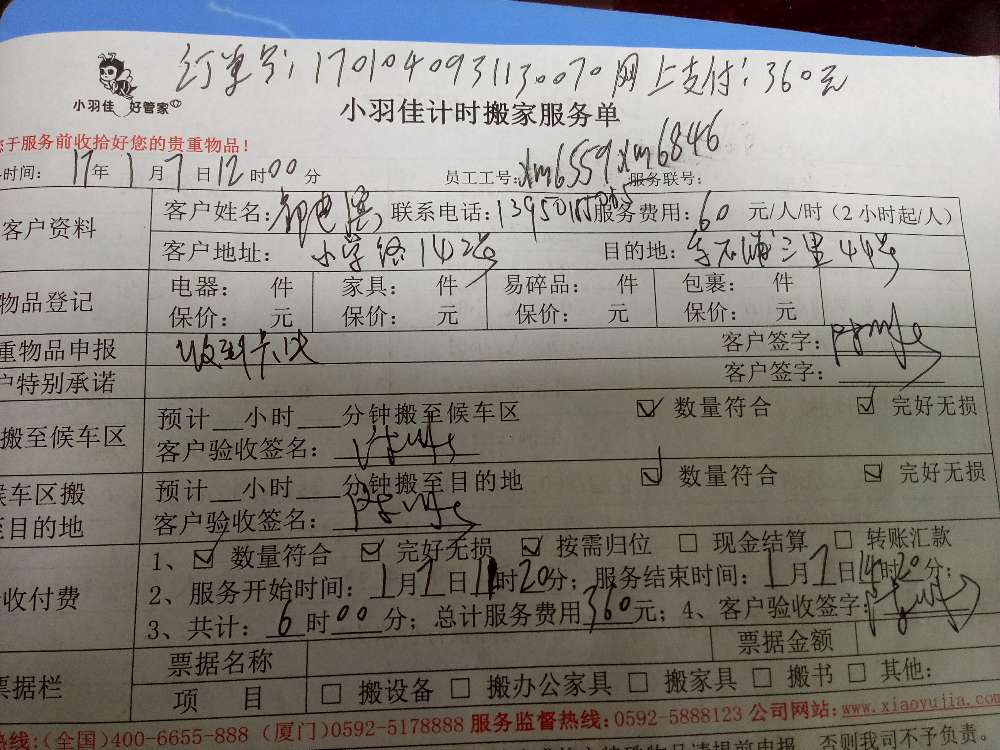 订单号:170104093113070网上支付:360元
小羽佳 好管家
小羽佳计时搬家服务单
您于服务前收拾好您的贵重物品!
时间:17年1月7日12时00分 员工工号:xm6559 xm6846 服务联号:
客户资料 客户姓名: 联系电话: 服务费用:60 元/人/时(2小时起/人)
客户地址: 小学路142号 目的地: 三里44号
物品登记 电器: 件 家具: 件 易碎品: 件 包裹: 件
保价: 元 保价: 元 保价: 元 保价: 元
重物品申报 客户签字:
户特别承诺 客户签字:
搬至候车区 预计__小时___分钟搬至候车区 ☑ 数量符合 ☑ 完好无损
客户验收签名:
候车区搬至目的地 预计__小时___分钟搬至目的地 ☑ 数量符合 ☑ 完好无损
客户验收签名:
收付费 1、☑ 数量符合 ☑ 完好无损 ☑ 按需归位 □ 现金结算 □ 转账汇款
2、服务开始时间:1月7日11时20分;服务结束时间:1月7日14时20分;
3、共计:6时00分;总计服务费用360元;4、客户验收签字:
票据栏 票据名称 票据金额
项 目 □ 搬设备 □ 搬办公家具 □ 搬家具 □ 搬书 □ 其他:
热线:(全国)400-6655-888 (厦门)0592-5178888 服务监督热线:0592-5888123 公司网站:www.xiaoyujia.com
否则我司不予负责。